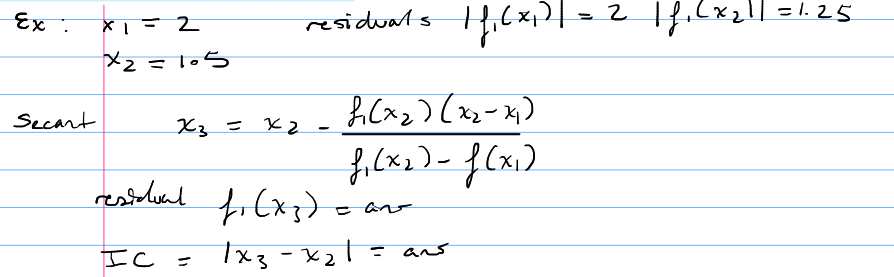 Ex : x₁ = 2 residuals |f₁(x₁)| = 2 |f₁(x₂)| = 1.25
x₂ = 1.5
Secant x₃ = x₂ - f₁(x₂)(x₂-x₁)
f₁(x₂) - f(x₁)
residual f₁(x₃) = ans
IC = |x₃ - x₂| = ans